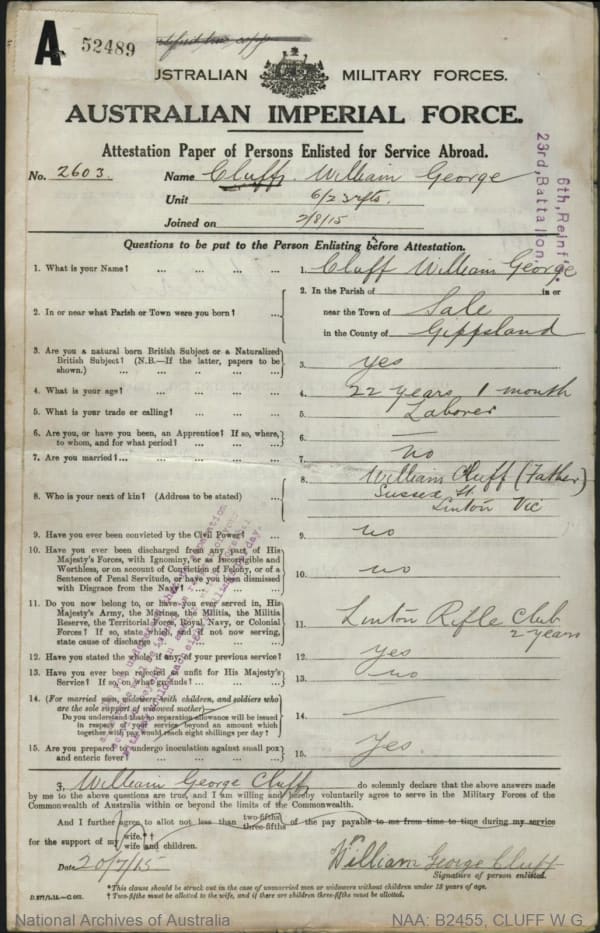 A 52489
AUSTRALIAN MILITARY FORCES.
AUSTRALIAN IMPERIAL FORCE.
Attestation Paper of Persons Enlisted for Service Abroad.
No. 2603. Name Cluff William George
Unit 6/23 rfts.
Joined on 2/8/15
6th, Reinf't
23rd, Battalion.
Questions to be put to the Person Enlisting before Attestation.
1. What is your Name? ... ... ... ... 1. Cluff William George
2. In or near what Parish or Town were you born? ... 2. In the Parish of in or
near the Town of Sale
in the County of Gippsland
3. Are you a natural born British Subject or a Naturalized
British Subject? (N.B.—If the latter, papers to be
shown.) ... ... ... ... ... 3. yes
4. What is your age? ... ... ... ... 4. 22 years 1 month
5. What is your trade or calling? ... ... ... 5. Laborer
6. Are you, or have you been, an Apprentice? If so, where,
to whom, and for what period? ... ... ... 6. —
7. Are you married?... ... ... ... ... 7. no
8. Who is your next of kin? (Address to be stated) ... 8. William Cluff (Father)
Sussex St.
Linton Vic
9. Have you ever been convicted by the Civil Power? ... 9. no
10. Have you ever been discharged from any part of His
Majesty's Forces, with Ignominy, or as Incorrigible and
Worthless, or on account of Conviction of Felony, or of a
Sentence of Penal Servitude, or have you been dismissed
with Disgrace from the Navy? ... ... 10. no
11. Do you now belong to, or have you ever served in, His
Majesty's Army, the Marines, the Militia, the Militia
Reserve, the Territorial Force, Royal Navy, or Colonial
Forces? If so, state which, and if not now serving,
state cause of discharge ... ... 11. Linton Rifle Club
2 years
12. Have you stated the whole, if any, of your previous service? 12. Yes
13. Have you ever been rejected as unfit for His Majesty's
Service? If so, on what grounds? ... ... ... 13. no
14. (For married men, widowers with children, and soldiers who
are the sole support of widowed mother)
Do you understand that no separation allowance will be issued
in respect of your service beyond an amount which
together with pay would reach eight shillings per day? 14. —
15. Are you prepared to undergo inoculation against small pox
and enteric fever? ... ... ... ... 15. Yes.
I, William George Cluff do solemnly declare that the above answers made
by me to the above questions are true, and I am willing and hereby voluntarily agree to serve in the Military Forces of the
Commonwealth of Australia within or beyond the limits of the Commonwealth.
And I further agree to allot not less than two-fifths three-fifths of the pay payable to me from time to time during my service
for the support of my wife.*† wife and children.
Date 20/7/15 William George Cluff
Signature of person enlisted.
*This clause should be struck out in the case of unmarried men or widowers without children under 18 years of age.
† Two-fifths must be allotted to the wife, and if there are children three-fifths must be allotted.
National Archives of Australia NAA: B2455, CLUFF W G